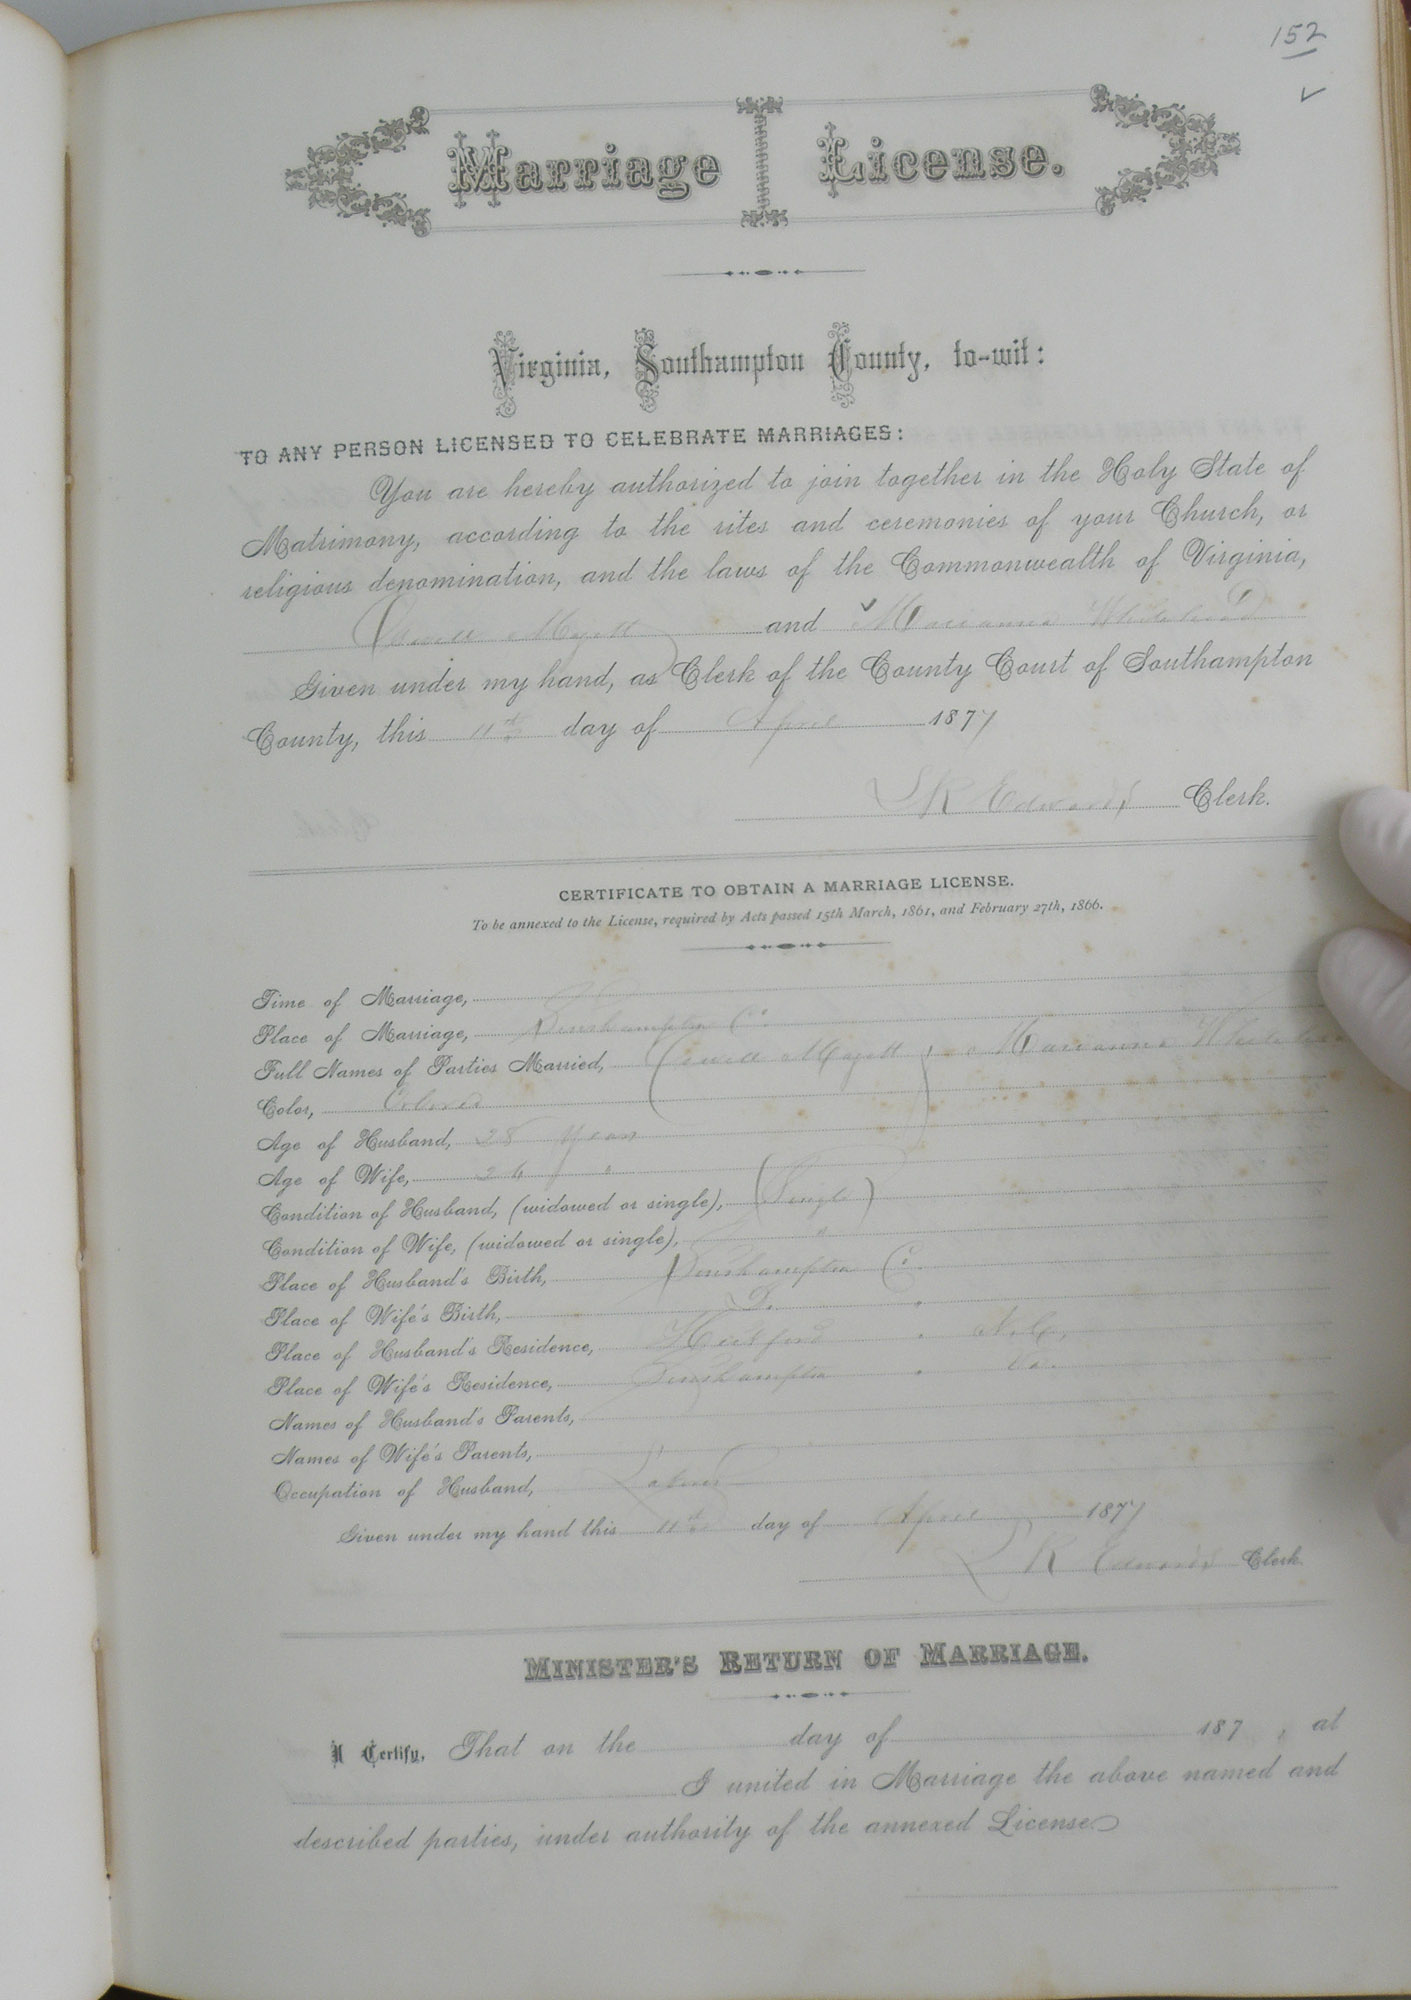 152
Marriage License.
Virginia, Southampton County, to-wit:
TO ANY PERSON LICENSED TO CELEBRATE MARRIAGES:
You are hereby authorized to join together in the Holy State of
Matrimony, according to the rites and ceremonies of your Church, or
religious denomination, and the laws of the Commonwealth of Virginia,
and Marianna Whitehead
Given under my hand, as Clerk of the County Court of Southampton
County, this 11th day of April 1877
L R Edwards Clerk.
CERTIFICATE TO OBTAIN A MARRIAGE LICENSE.
To be annexed to the License, required by Acts passed 15th March, 1861, and February 27th, 1866.
Time of Marriage,
Place of Marriage, Southampton Co.
Full Names of Parties Married, Marianna
Color, Colored
Age of Husband, 28 Years
Age of Wife, 26 "
Condition of Husband, (widowed or single), Single
Condition of Wife, (widowed or single), "
Place of Husband's Birth, Southampton Co.
Place of Wife's Birth, "
Place of Husband's Residence, Hertford " N.C.
Place of Wife's Residence, Southampton " Va.
Names of Husband's Parents,
Names of Wife's Parents,
Occupation of Husband, Laborer
Given under my hand this 11th day of April 1877
L R Edwards Clerk.
MINISTER'S RETURN OF MARRIAGE.
I Certify, That on the day of 187 , at
I united in Marriage the above named and
described parties, under authority of the annexed License